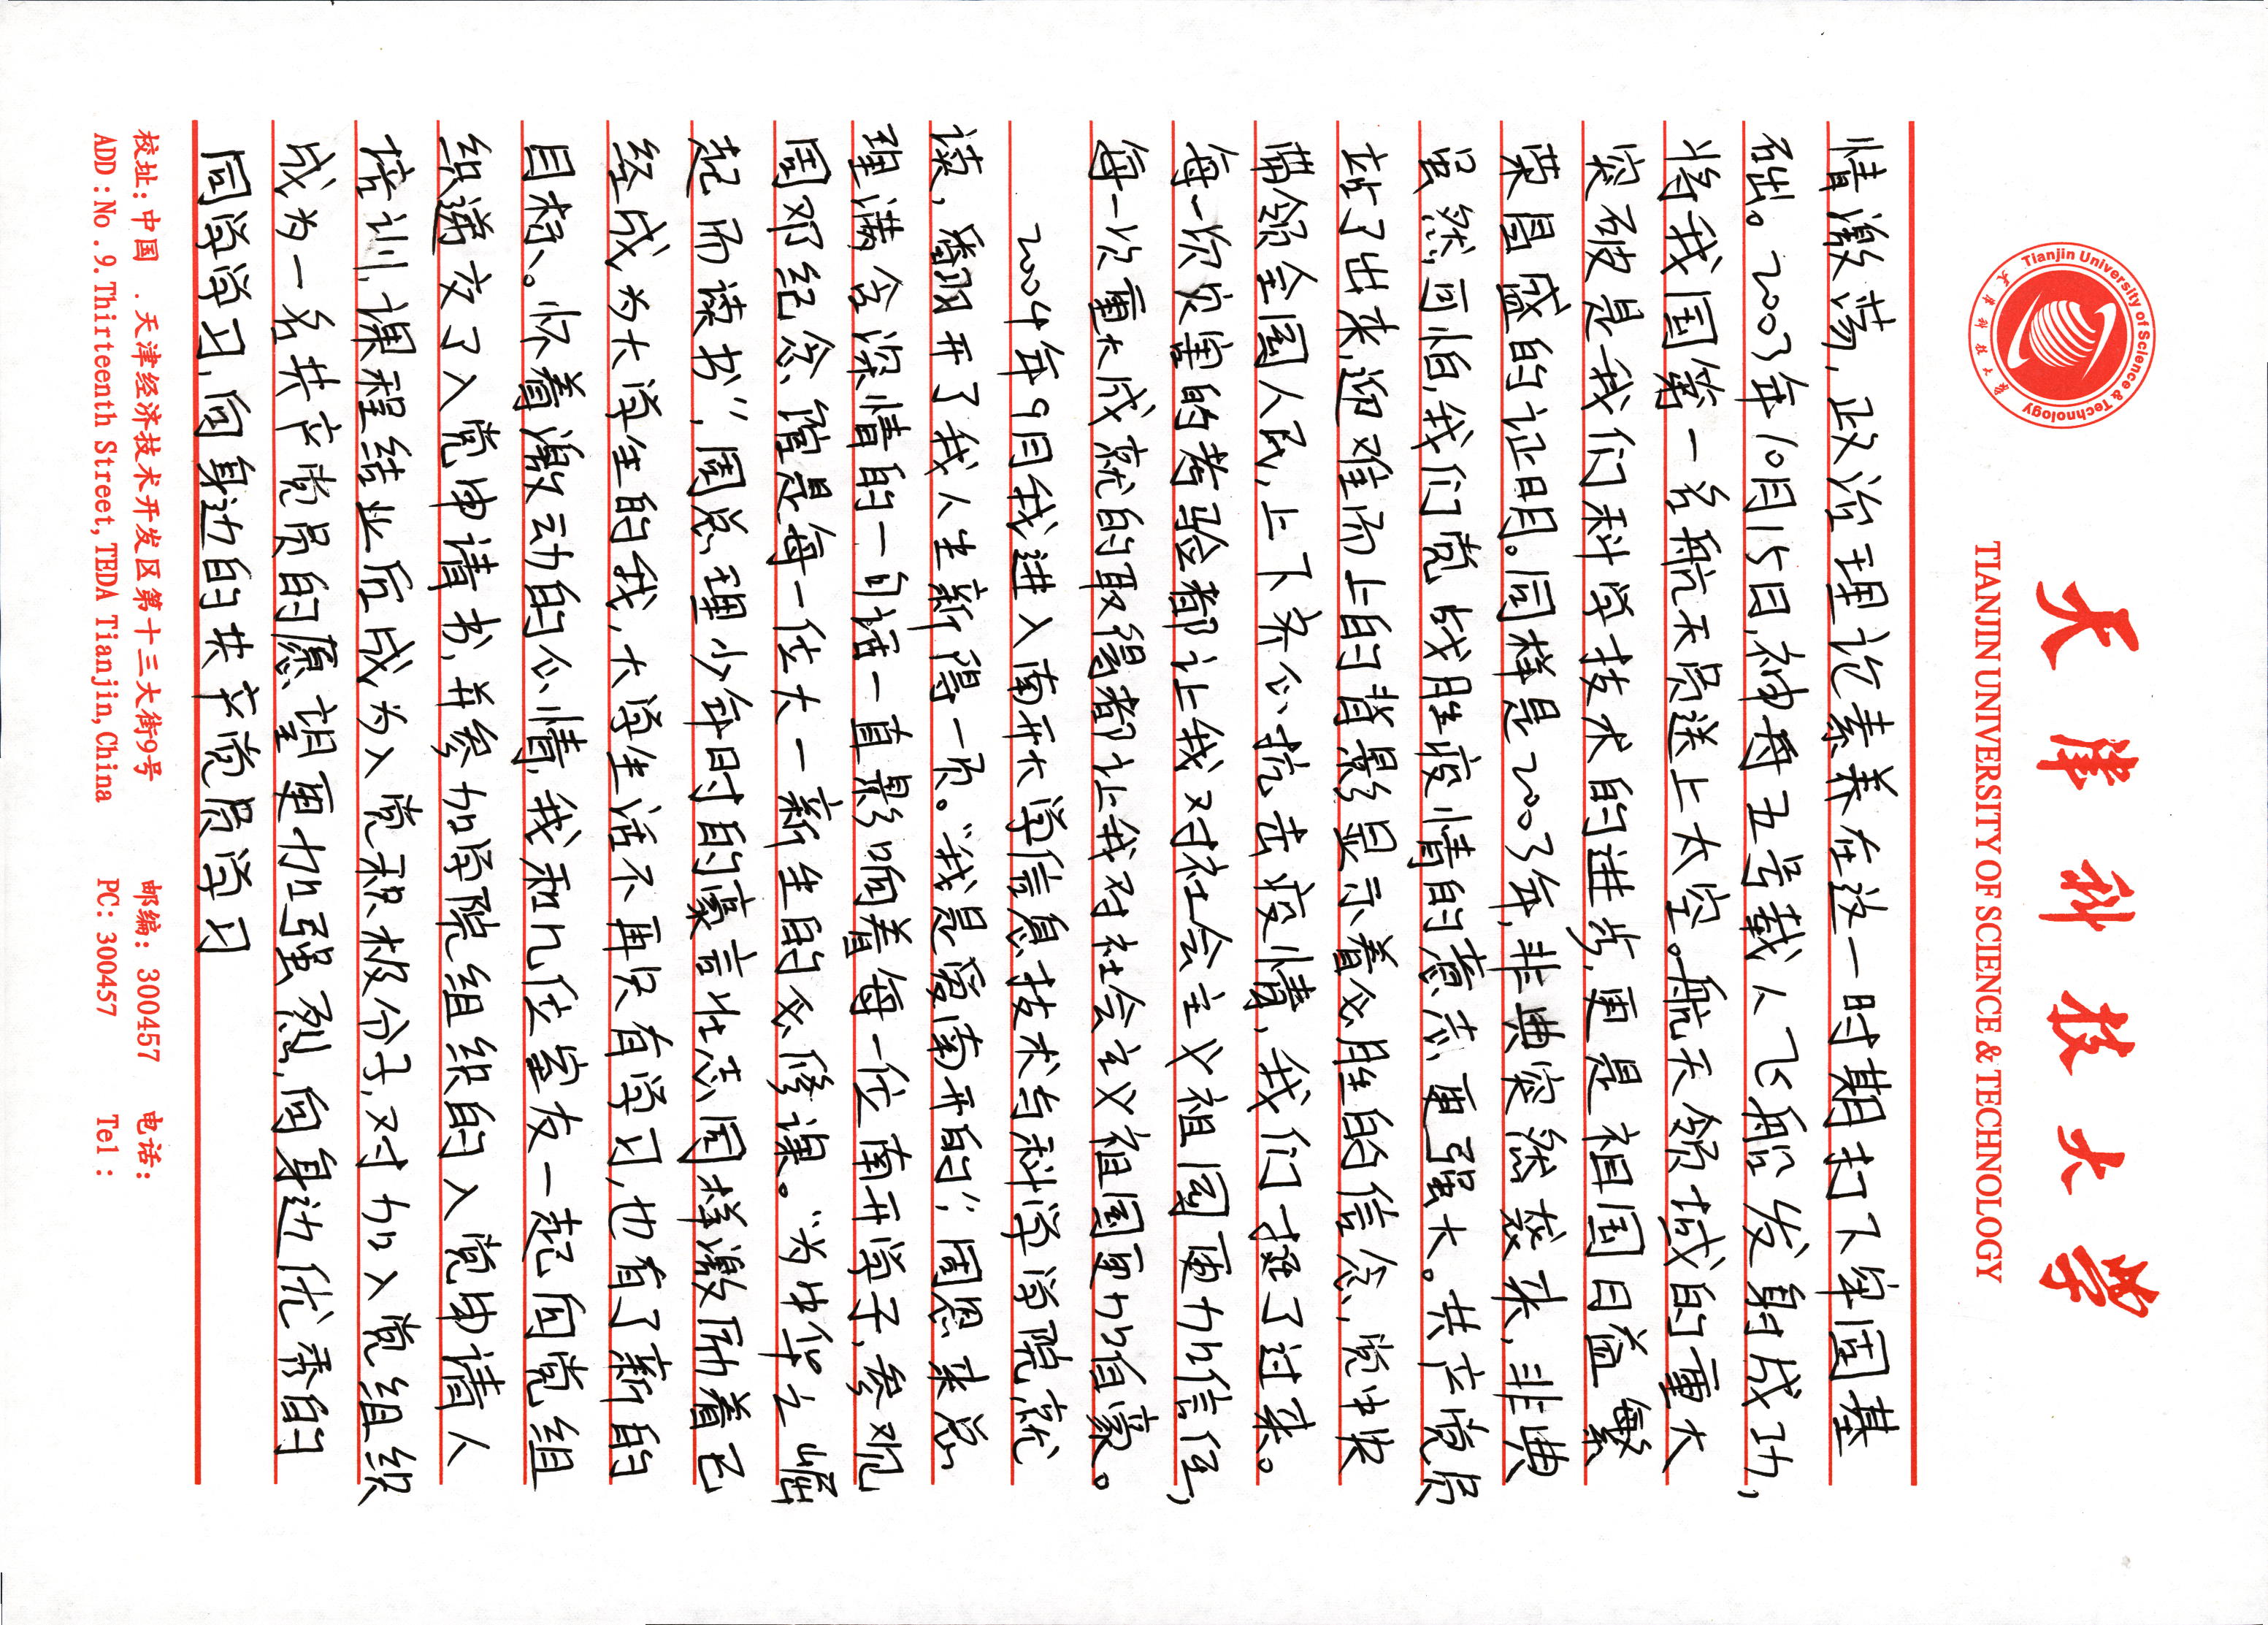 Tianjin University of Science & Technology
天津科技大学
天津科技大学
TIANJIN UNIVERSITY OF SCIENCE & TECHNOLOGY
情激荡,政治理论素养在这一时期打下牢固基
础。2003年10月15日,神舟五号载人飞船发射成功,
将我国第一名航天员送上太空。航天领域的重大
突破是我们科学技术的进步,更是祖国日益繁
荣昌盛的证明。同样是2003年,非典突然袭来,非典
虽然可怕,我们党战胜疫情的意志更强大。共产党员
站了出来,迎难而上的背影显示着必胜的信念,党中央
带领全国人民,上下齐心抗击疫情,我们挺了过来。
每一次灾害的考验都让我对社会主义祖国更加信任,
每一次重大成就的取得都让我对社会主义祖国更加自豪。
2004年9月我进入南开大学信息技术与科学学院就
读,翻开了我人生新得一页。“我是爱南开的”,周恩来总
理满含深情的一句话一直影响着每一位南开学子,参观
周邓纪念馆是每一位大一新生的必修课。“为中华之崛
起而读书”,周总理少年时的豪言壮志同样激励着已
经成为大学生的我,大学生活不再只有学习,也有了新的
目标。怀着激动的心情,我和几位室友一起向党组
织递交了入党申请书,并参加学院组织的入党申请人
培训,课程结业后成为入党积极分子,对加入党组织
成为一名共产党员的愿望更加强烈,向身边优秀的
同学学习,向身边的共产党员学习
校址:中国 .天津经济技术开发区第十三大街9号 邮编:300457 电话:
ADD :No .9.Thirteenth Street,TEDA Tianjin,China PC: 300457 Tel :